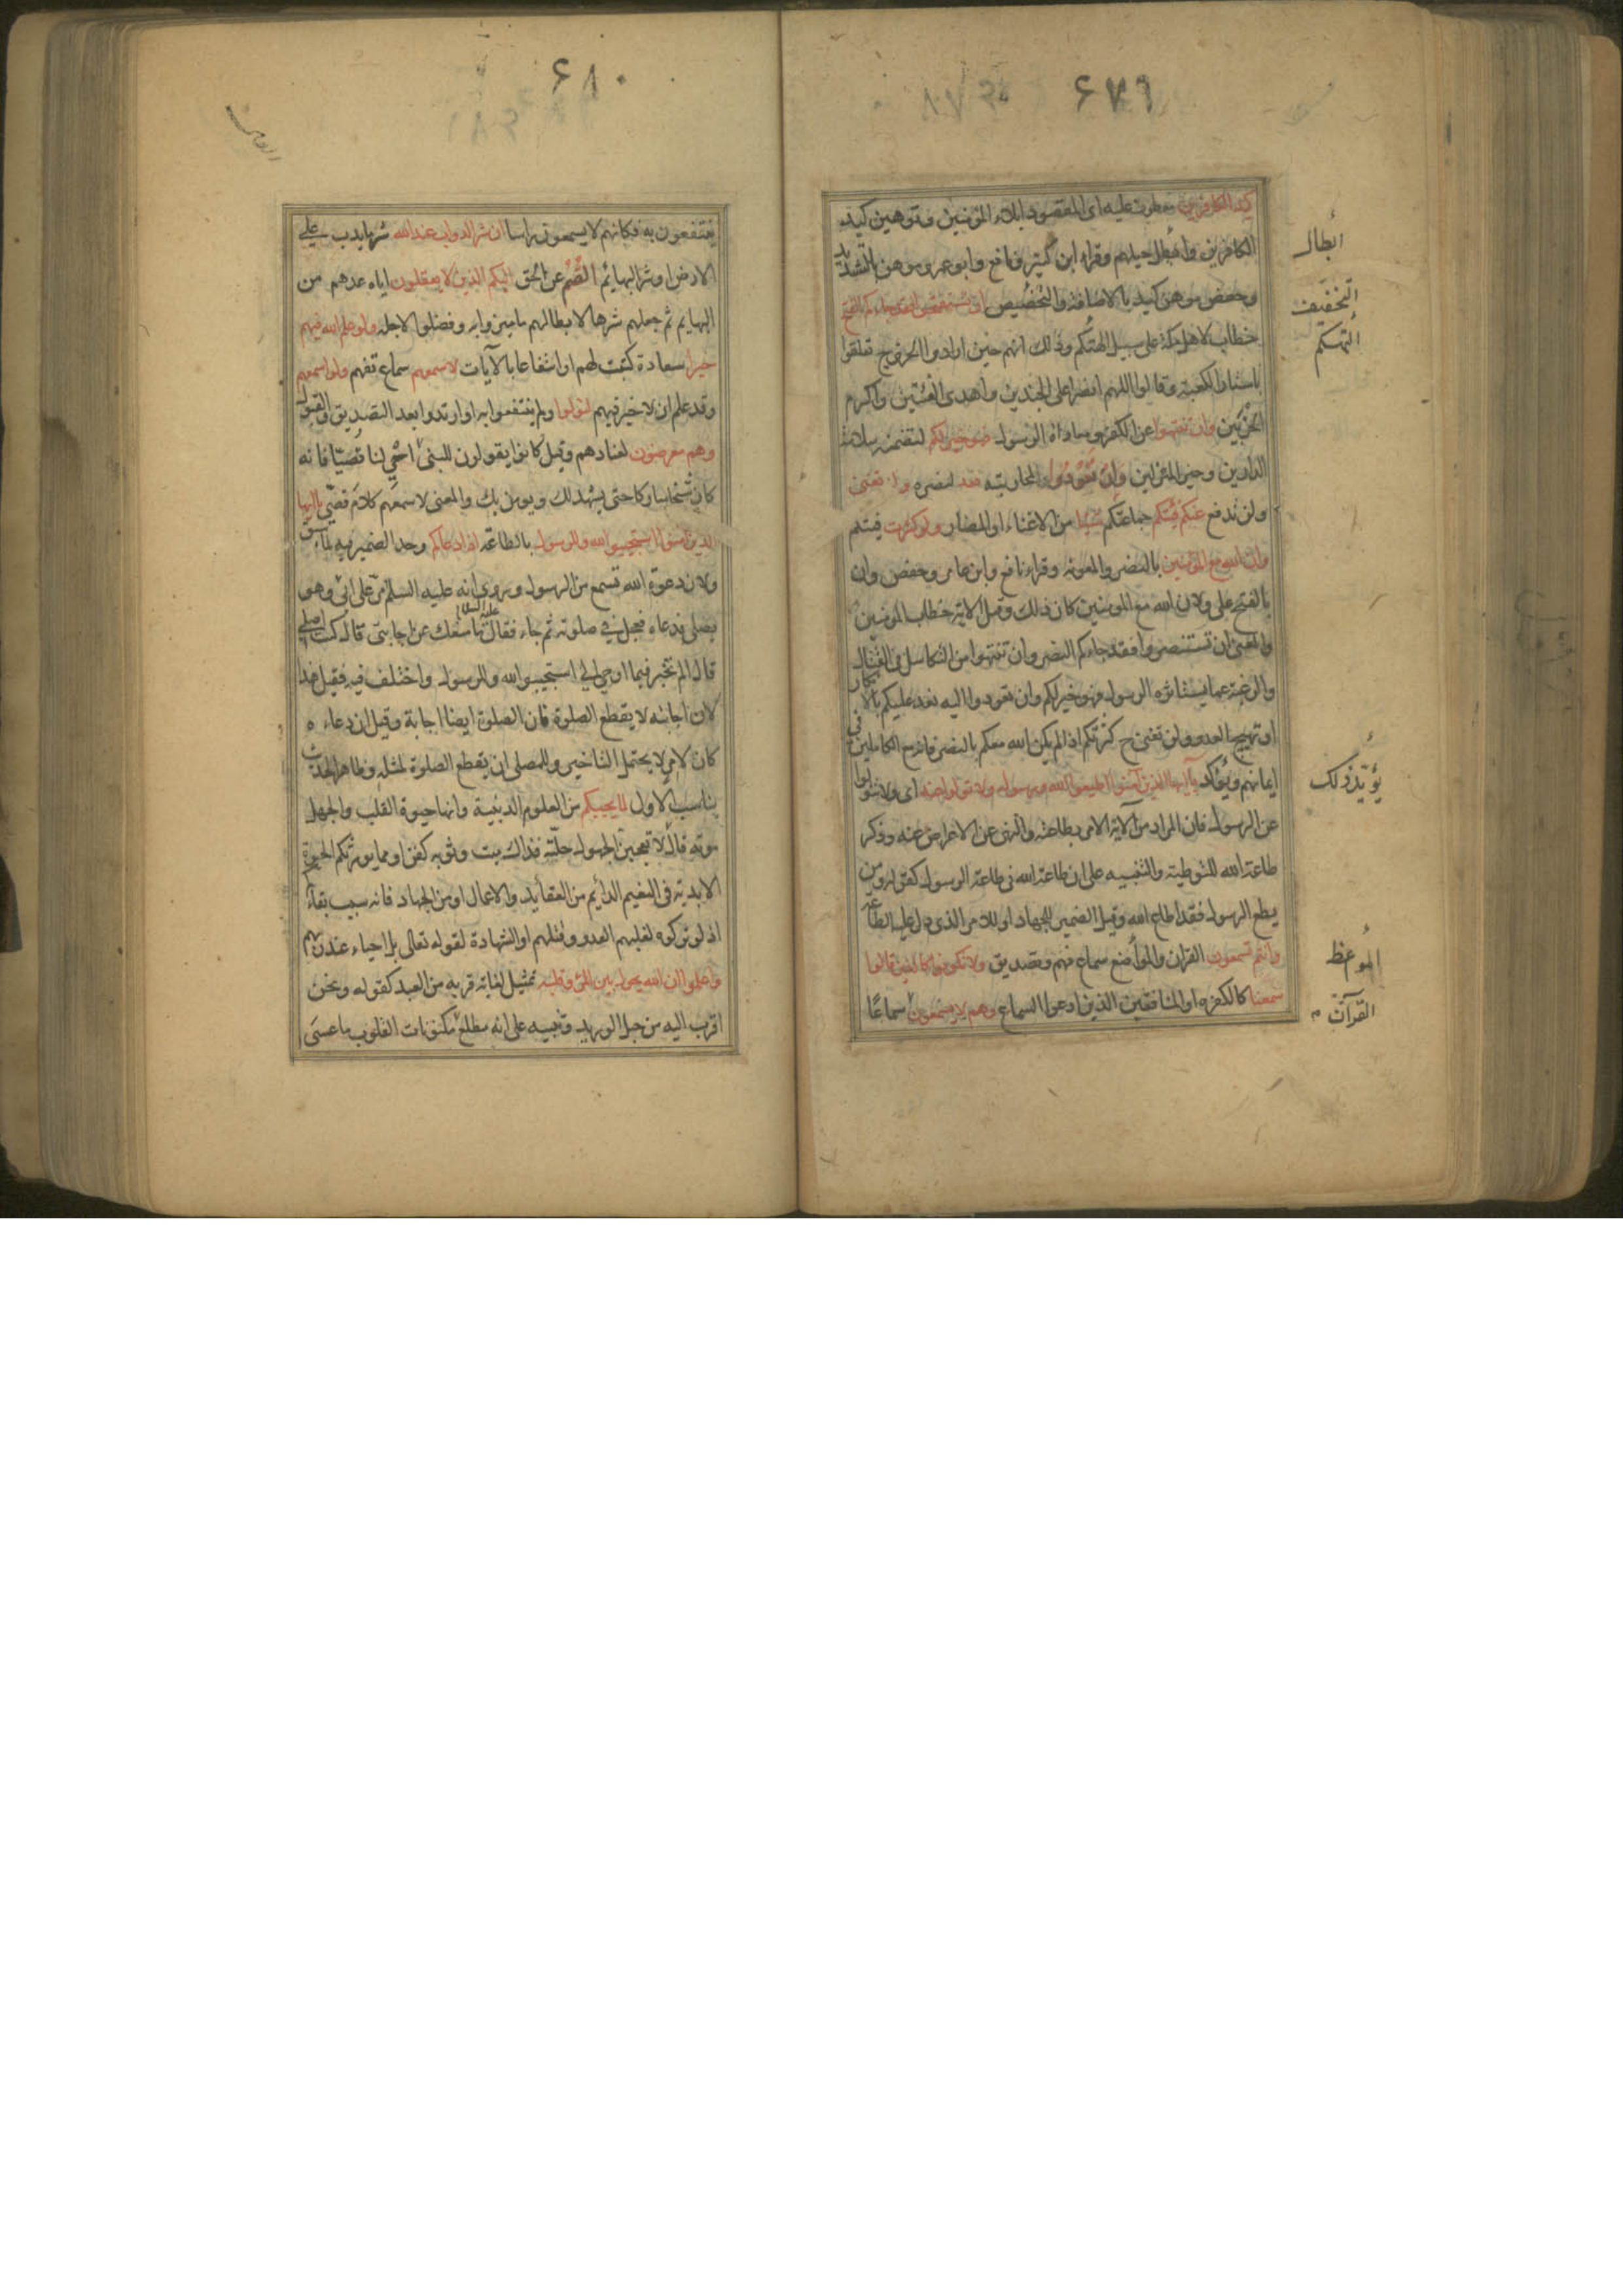 ۶۷۹
كيد الكافرين معطوف عليه اى المقصود ابلاء المؤمنين وتوهين كيد
الكافرين وابطال حيلهم وقراء ابن كثير ونافع وابو عمرو موهن بالتشديد
وحفص موهن كيد بالاضافة والتخصيص ان تستفتحوا فقد جاءكم الفتح
خطاب لاهل مكة على سبيل التهكم وذلك انهم حين ارادوا الخروج تعلقوا
باستار الكعبة وقالوا اللهم انصر اعلى الجندين واهدى الفئتين واكرم
الحزبين وان تنتهوا عن الكفر ومعاداة الرسول فهو خير لكم لتضمنه سلامة
الدارين وخير المنزلين وان تعودوا لمحاربته نعد لنصره ولن تغنى
ولن ندفع عنكم فئتكم جماعتكم شيئا من الاغناء او المضار ولو كثرت فيئتكم
وان الله مع المؤمنين بالنصر والمعونة وقراء نافع وابن عامر وحفص وان
بالفتح على ولان الله مع المومنين كان ذلك وقيل الاية خطاب المومنين
والمعنى ان تستنصروا فقد جاءكم النصر وان تنتهوا من التكاسل فى القتال
والرغبة عما يستاثره الرسول فهو خير لكم وان تعودوا اليه نعد عليكم بالانكار
او تهييج العدو ولن تغنى ح كثرتكم اذ لم يكن الله معكم بالنصر فانه مع الكاملين فى
ايمانهم ويؤكد يا ايها الذين آمنوا اطيعوا الله ورسوله ولا تولوا عنه اى ولا تتولوا
عن الرسول فان المراد من الآية الامر بطاعته والنهى عن الاعراض عنه وذكر
طاعة الله للتوطية والتنبيه على ان طاعة الله فى طاعة الرسول كقوله ومن
يطع الرسول فقد اطاع الله وقيل الضمير للجهاد او للامر الذى دل عليه الطاعة
وانتم تسمعون القران والمواضع سماع فهم وتصديق ولا تكونوا كالذين قالوا
سمعنا كالكفرة او المنافقين الذين ادعوا السماع وهم لا يسمعون سماعًا
ابطال
التخفيف
التهكم
يؤيد ذلك
المواعظ
القرآن
۶۸۰
ينتفعون به فكانهم لا يسمعون راسا ان شر الدواب عند الله شر ما يدب على
الارض او شر البهائم الصُّم عن الحق البكم الذين لا يعقلون اياه عدهم من
البهايم ثم جعلهم شرها لابطالهم ما ميزوا به وفضلوا لاجله ولو علم الله فيهم
خيرا سعادة كتبت لهم او انتفاعا بالآيات لاسمعهم سماع تفهم ولو اسمعهم
وقد علم ان لا خير فيهم لتولوا ولم ينتفعوا به او ارتدوا بعد التصديق والقبول
وهم معرضون لعنادهم وقيل كانوا يقولون للنبى احْيِ لنا قُصيّا فانه
كان شيخا مباركا حتى يشهد لك ويومن بك والمعنى لاسمعهم كلام قصى يا ايها
الذين آمنوا استجيبوا لله وللرسول بالطاعة اذا دعاكم وحد الضمير فيه لما سبق
ولان دعوة الله تسمع من الرسول وروى انه عليه السلم مرّ على ابىّ وهو
يصلى فدعاه فعجل فى صلوته ثم جاء فقال عليه السلام ما منعك عن اجابتى قال كنت اصلى
قال الم تخبر فيما اوحى الي استجيبوا لله والرسول واختلف فيه فقيل هذا
لان اجابته لا يقطع الصلوة فان الصلوة ايضا اجابة وقيل ان دعاءه
كان لامر لا يحتمل التاخير وللمصلى ان يقطع الصلوة لمثله وظاهر الحديث
يناسب الاول لما يحييكم من العلوم الدينية وانها حيوة القلب والجهل
موته قال لا تعجبن الجهول حلّته فذاك ميت وثوبه كفن او مما يورثكم الحيوة
الابدية فى النعيم الدائم من العقايد والاعمال او من الجهاد فانه سبب بقاءكم
اذ لو تركوه لغلبهم العدو وقتلهم او الشهادة لقوله تعالى بل احياء عند ربهم
واعلموا ان الله يحول بين المرء وقلبه تمثيل لغاية قربه من العبد كقوله ونحن
اقرب اليه من حبل الوريد وتنبيه على انه مطلع مكنونات القلوب ما عسى